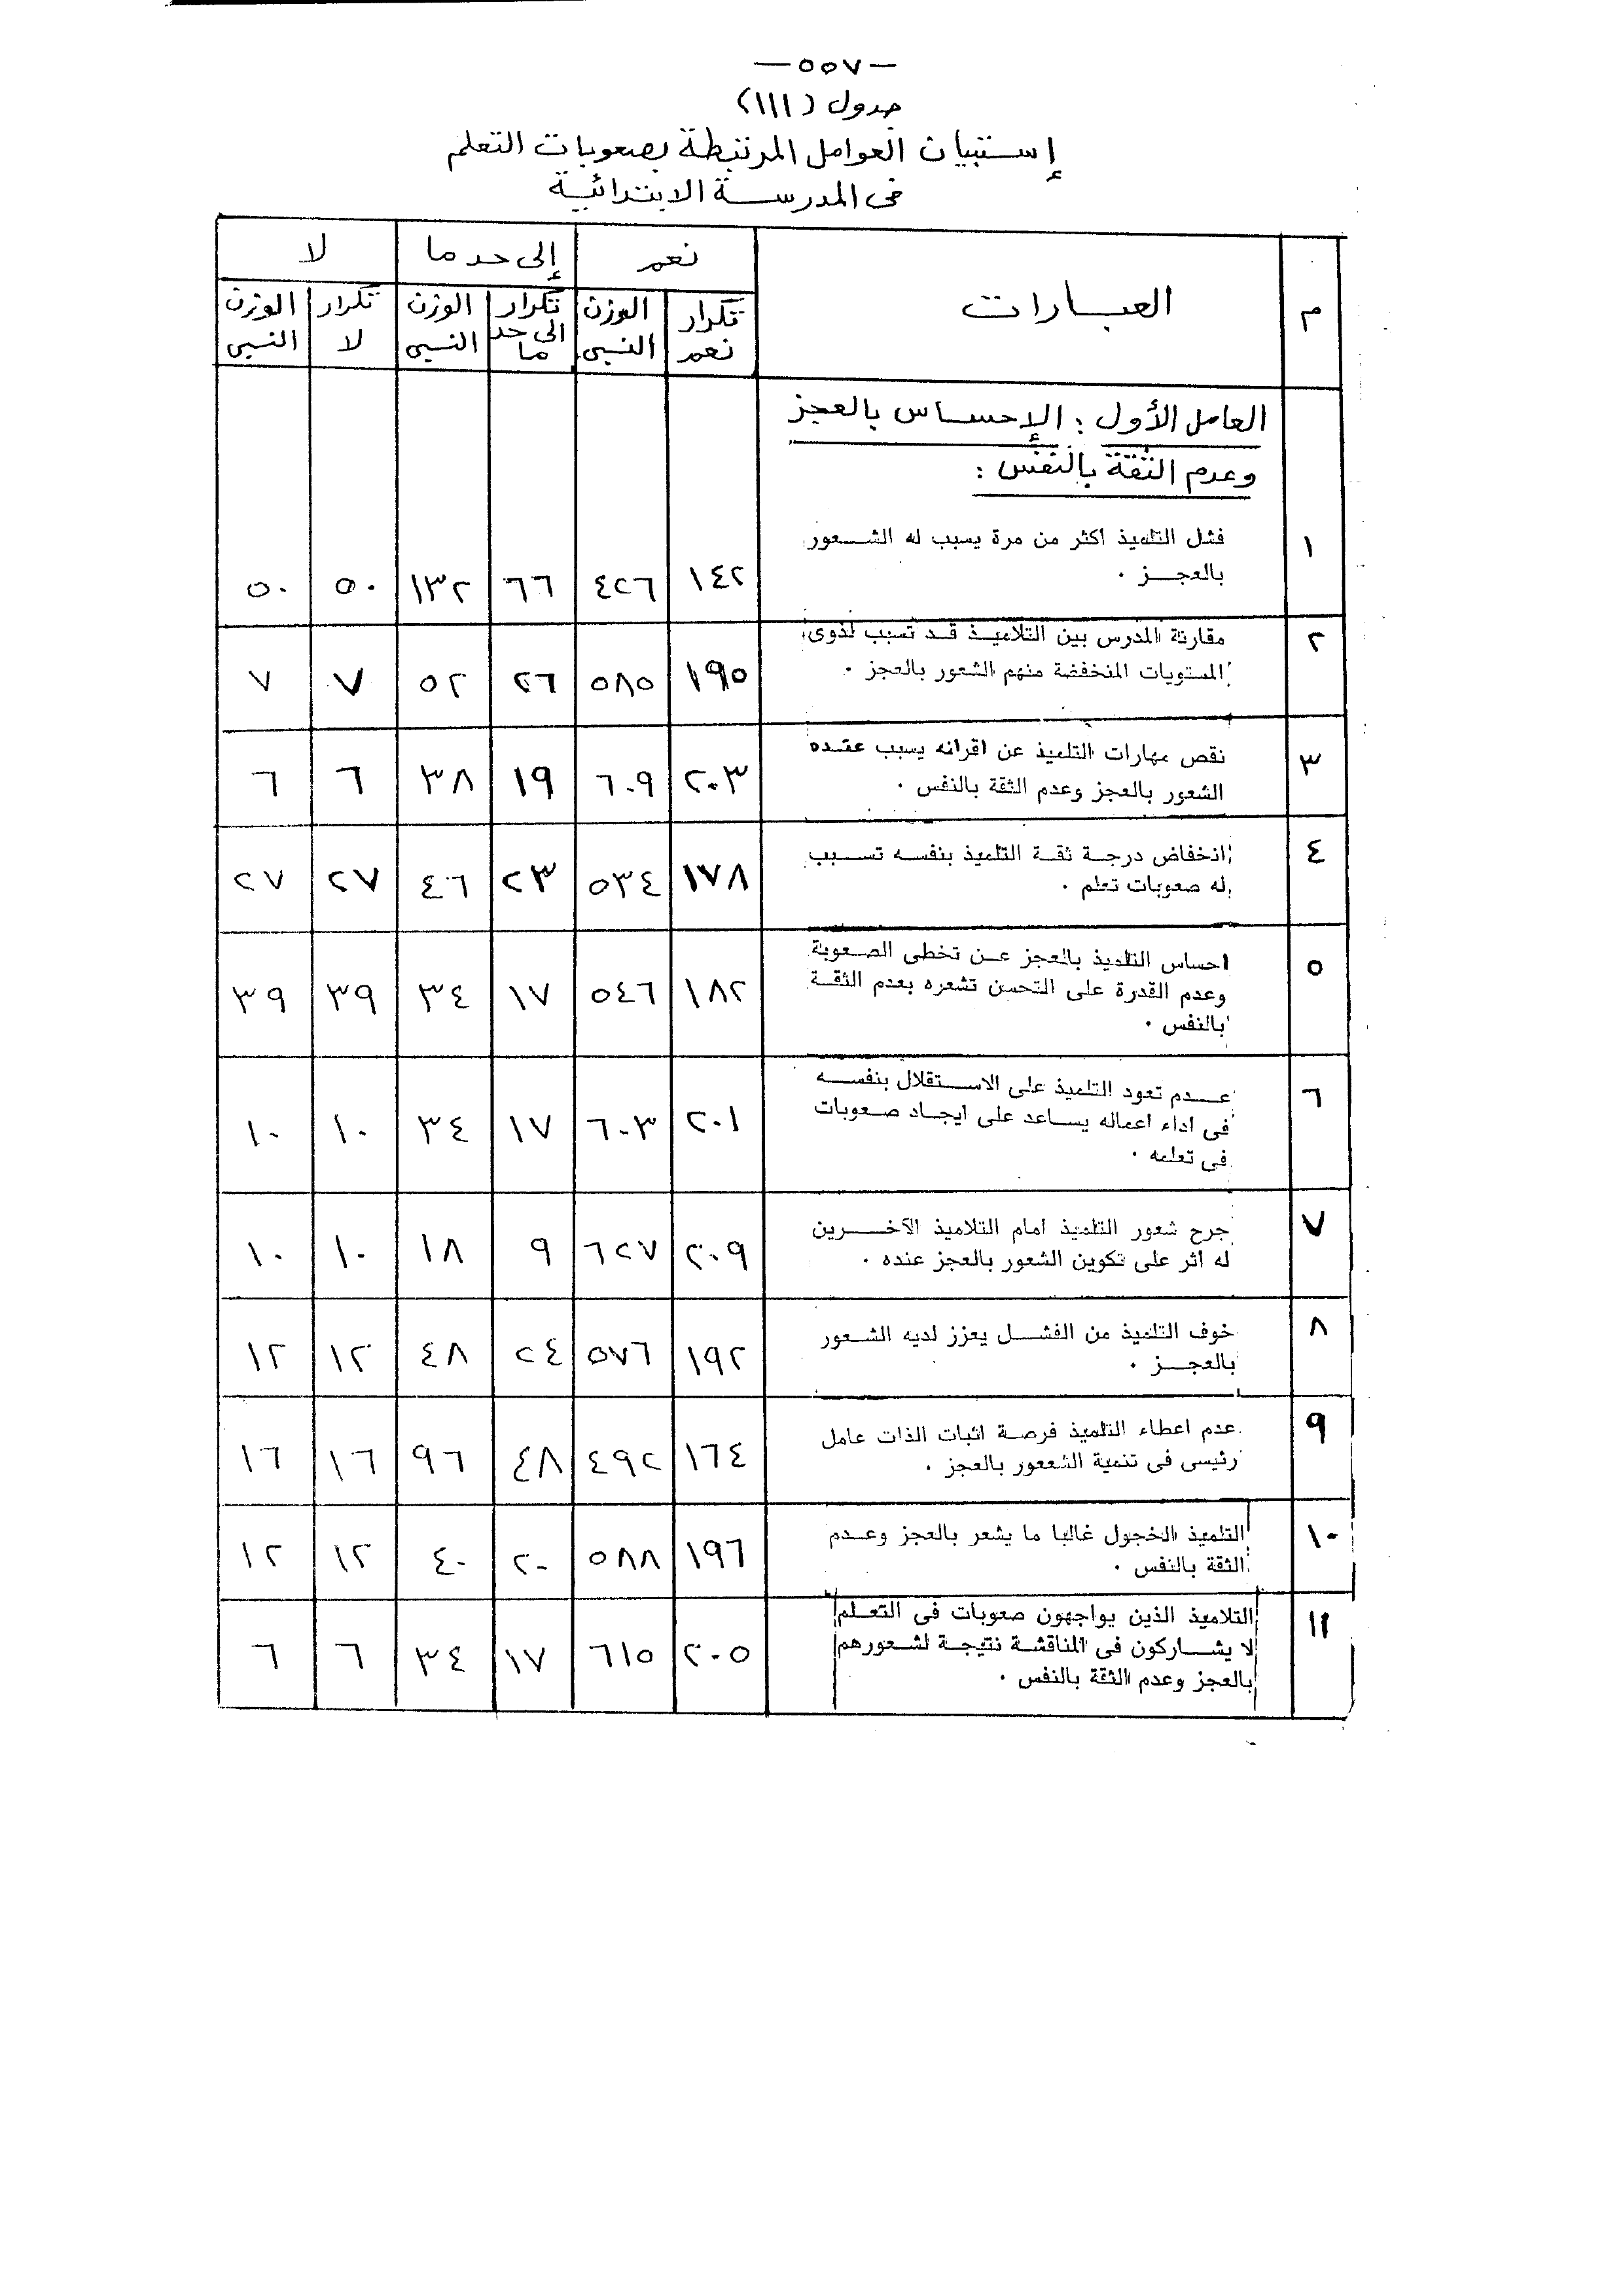 — ٥٥٧ —
جدول (١١١)
إستبيان العوامل المرتبطة بصعوبات التعلم
فى المدرسة الابتدائية
م العبارات نعم إلى حد ما لا
تكرار نعم الوزن النسبى تكرار الى حد ما الوزن النسبى تكرار لا الوزن النسبى
العامل الأول : الإحساس بالعجز
وعدم الثقة بالنفس :
١ فشل التلميذ اكثر من مرة يسبب له الشعور
بالعجز . ١٤٢ ٤٢٦ ٦٦ ١٣٢ ٥٠ ٥٠
٢ مقارنة المدرس بين التلاميذ قد تسبب لذوى
المستويات المنخفضة منهم الشعور بالعجز . ١٩٥ ٥٨٥ ٢٦ ٥٢ ٧ ٧
٣ نقص مهارات التلميذ عن اقرانه يسبب عنده
الشعور بالعجز وعدم الثقة بالنفس . ٢٠٣ ٦٠٩ ١٩ ٣٨ ٦ ٦
٤ انخفاض درجة ثقة التلميذ بنفسه تسبب
له صعوبات تعلم . ١٧٨ ٥٣٤ ٢٣ ٤٦ ٢٧ ٢٧
٥ احساس التلميذ بالعجز عن تخطى الصعوبة
وعدم القدرة على التحسن تشعره بعدم الثقة
بالنفس . ١٨٢ ٥٤٦ ١٧ ٣٤ ٣٩ ٣٩
٦ عدم تعود التلميذ على الاستقلال بنفسه
فى اداء اعماله يساعد على ايجاد صعوبات
فى تعلمه . ٢٠١ ٦٠٣ ١٧ ٣٤ ١٠ ١٠
٧ جرح شعور التلميذ امام التلاميذ الآخرين
له اثر على تكوين الشعور بالعجز عنده . ٢٠٩ ٦٢٧ ٩ ١٨ ١٠ ١٠
٨ خوف التلميذ من الفشل يعزز لديه الشعور
بالعجز . ١٩٢ ٥٧٦ ٢٤ ٤٨ ١٢ ١٢
٩ عدم اعطاء التلميذ فرصة اثبات الذات عامل
رئيسى فى تنمية الشععور بالعجز . ١٦٤ ٤٩٢ ٤٨ ٩٦ ١٦ ١٦
١٠ التلميذ الخجول غالبا ما يشعر بالعجز وعدم
الثقة بالنفس . ١٩٦ ٥٨٨ ٢٠ ٤٠ ١٢ ١٢
١١ التلاميذ الذين يواجهون صعوبات فى التعلم
لا يشاركون فى المناقشة نتيجة لشعورهم
بالعجز وعدم الثقة بالنفس . ٢٠٥ ٦١٥ ١٧ ٣٤ ٦ ٦